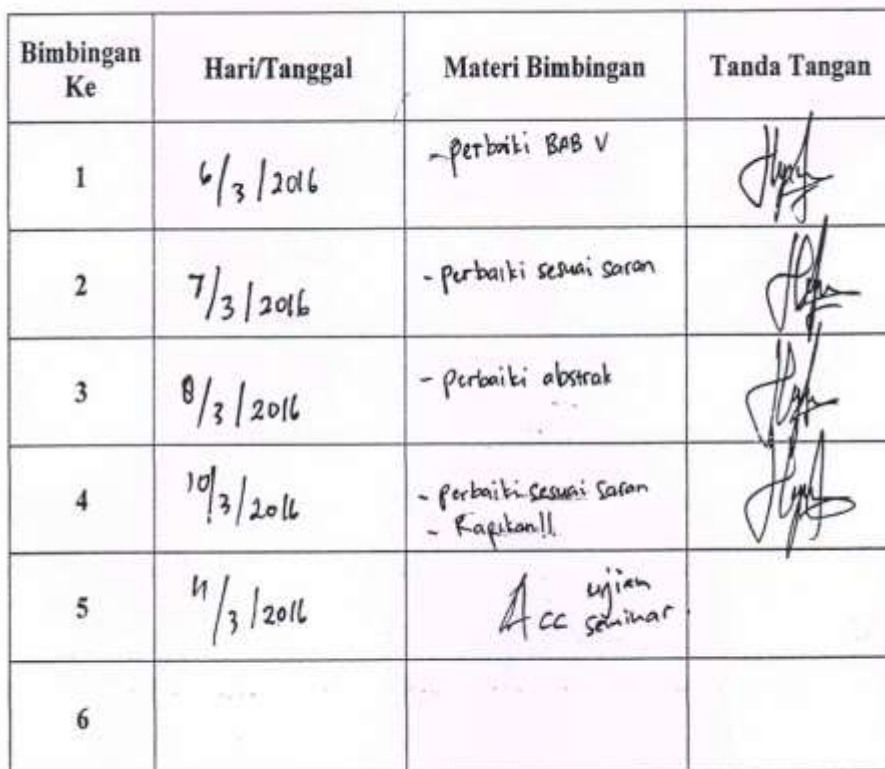 Bimbingan Ke
Hari/Tanggal
Materi Bimbingan
Tanda Tangan
1
6/3/2016
- perbaiki BAB V
2
7/3/2016
- perbaiki sesuai saran
3
8/3/2016
- perbaiki abstrak
4
10/3/2016
- perbaiki sesuai saran
- Rapikan!!
5
11/3/2016
Acc ujian
seminar
6